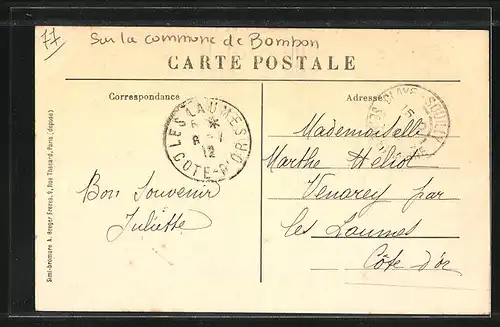 77
Sur la commune de Bombon
CARTE POSTALE
Correspondance
Adresse
LES LAUMES
12
COTE-D'OR
Mademoiselle
Marthe Héliot
Venarey par
les Laumes
Côte d'or
Bon Souvenir
Juliette
Simi-bromure A. Breger Frères, 9, Rue Thénard, Paris (déposé)